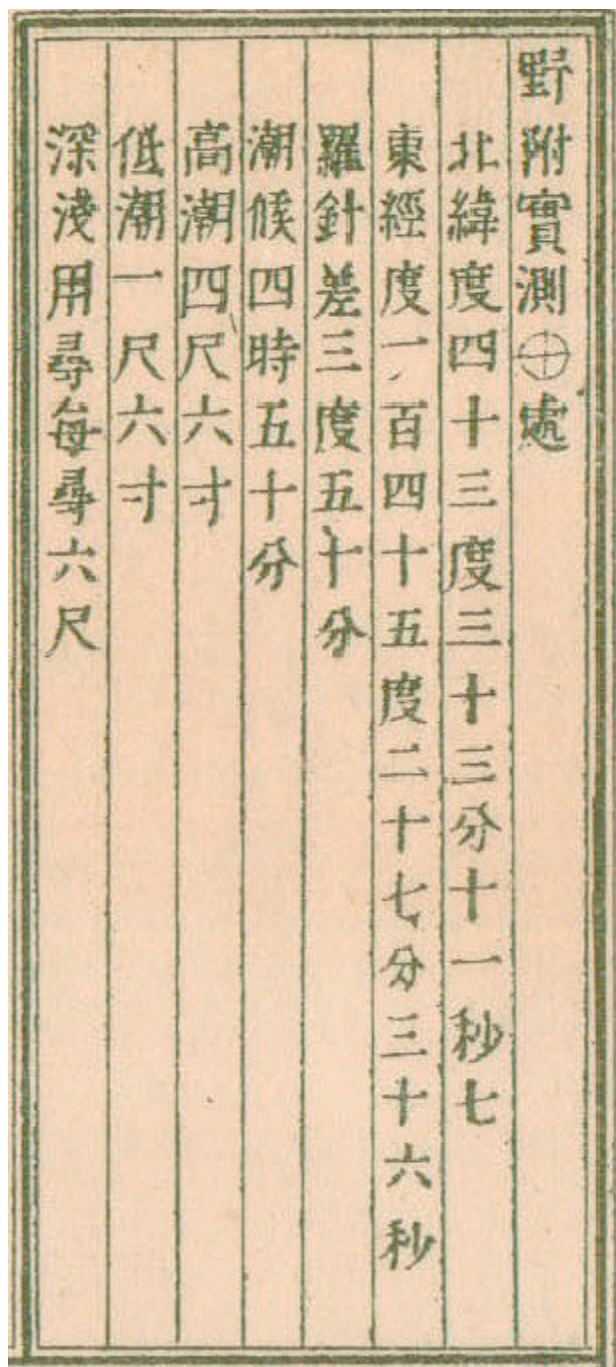 野附實測⊕處
北緯度四十三度三十三分十一秒七
東經度一百四十五度二十七分三十六秒
羅針差三度五十分
潮候四時五十分
高潮四尺六寸
低潮一尺六寸
深淺用尋每尋六尺